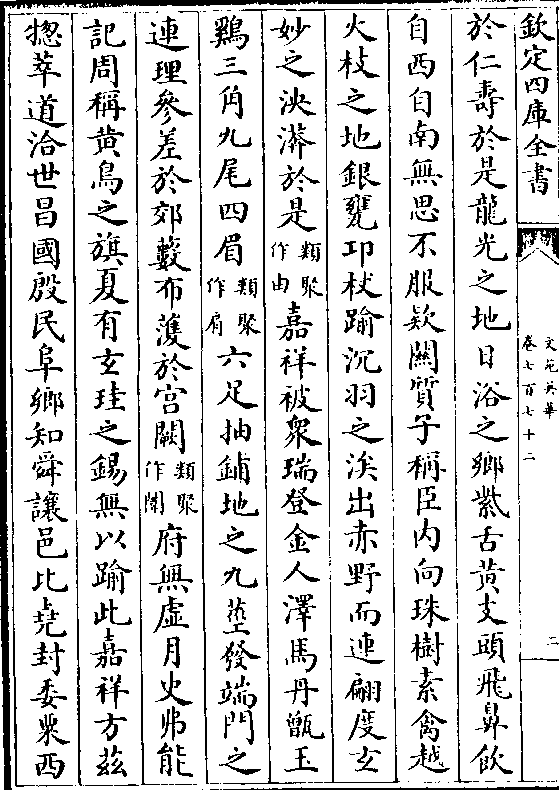 欽定四庫全書
文苑英華
卷七百七十二
二
於仁壽於是龍光之地日浴之鄉紫舌黄支頭飛鼻飲
自西自南無思不服欵闗質子稱臣内向珠樹素禽越
火枝之地銀甕邛杖踰沉羽之涘出赤野而連翩度玄
妙之泱漭於是類聚作由嘉祥被衆瑞登金人澤馬丹甑玉
鷄三角九尾四眉類聚作肩六足抽鋪地之九莖發端門之
連理參差於郊藪布濩於宫闕類聚作闈府無虚月史弗能
記周稱黄鳥之旗夏有玄珪之錫無以踰此嘉祥方茲
揔萃道洽世昌國殷民阜鄉知舜讓邑比堯封委粟西